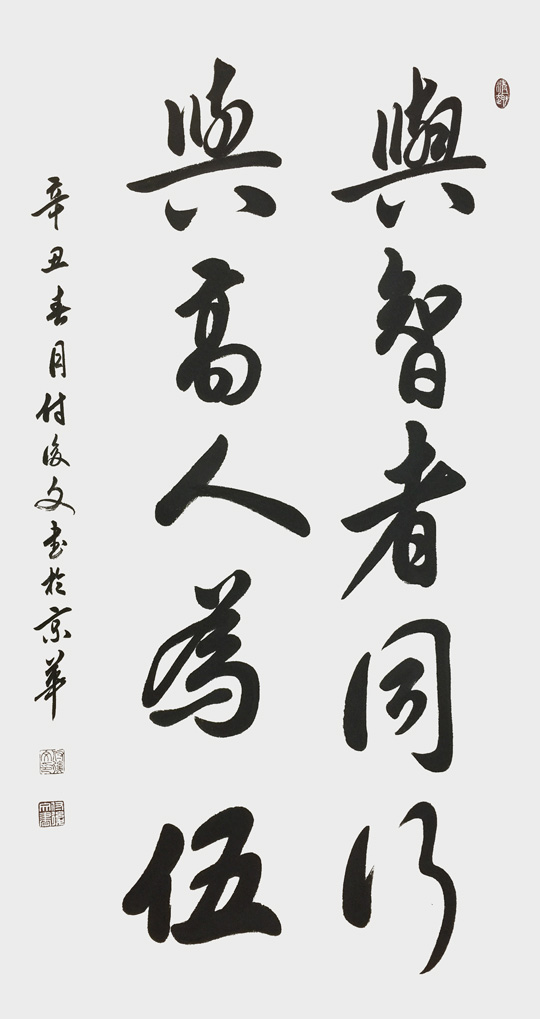 與智者同行
與高人為伍
辛丑春月付俊文书於京華